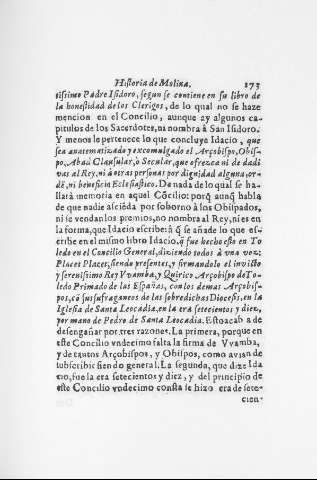 Historia de Molina. 173
tissimo Padre Isidoro, segun se contiene en su libro de
la honestidad de los Clerigos, de lo qual no se haze
mencion en el Concilio, aunque ay algunos ca-
pitulos de los Sacerdotes, ni nombra à San Isidoro.
Y menos le pertenece lo que concluye Idacio, que
sea anatematizado y excomulgado el Arçobispo, Obis-
po, Abad Clausular, ò Secular, que ofrezca ni de dadi
vas al Rey, ni à otras personas por dignidad alguna, or-
dē, ni beneficio Eclesiastico. De nada de lo qual se ha-
llarà memoria en aquel Cōcilio: porq̃ aunq̃ habla
de que nadie asciēda por soborno à los Obispados,
ni se vendan los premios, no nombra al Rey, ni es en
la forma, que Idacio escribe: à q̃ se añade lo que es-
cribe en el mismo libro Idacio, q̃ fue hecho esto en To
ledo en el Concilio General, diziendo todos à una voz:
Placet Placet, siendo presentes, y firmandolo el invicto
y serenissimo Rey Vvamba, y Quirico Arçobispo de To-
ledo Primado de las Españas, con los demas Arçobis-
pos, cō sus sufraganeos de las sobredichas Diocesis, en la
Iglesia de Santa Leocadia, en la era setecientos y diez,
por mano de Pedro de Santa Leocadia. Esto acaba de
desengañar por tres razones. La primera, porque en
este Concilio vndecimo falta la firma de Vvamba,
y de tantos Arçobispos, y Obispos, como avian de
subscribir siendo general. La segunda, que dize Ida
cio, fue la era setecientos y diez, y del principio de
este Concilio vndecimo consta se hizo era de sete-
cien-